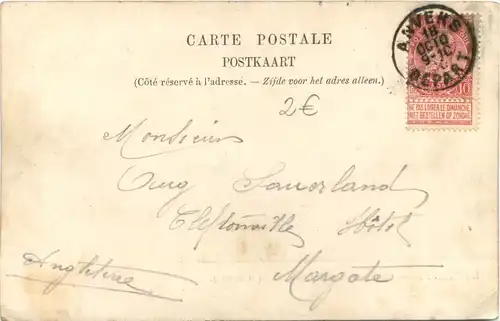 CARTE POSTALE
POSTKAART
(Côté réservé à l'adresse. — Zijde voor het adres alleen.)
2€
ANVERS
18
OCTO
9-10
DEPART
10
NE PAS LIVRER LE DIMANCHE
NIET BESTELLEN OP ZONDAG
Monsieur
Sauerland
Cliftonville Hôtel
Margate
Angleterre